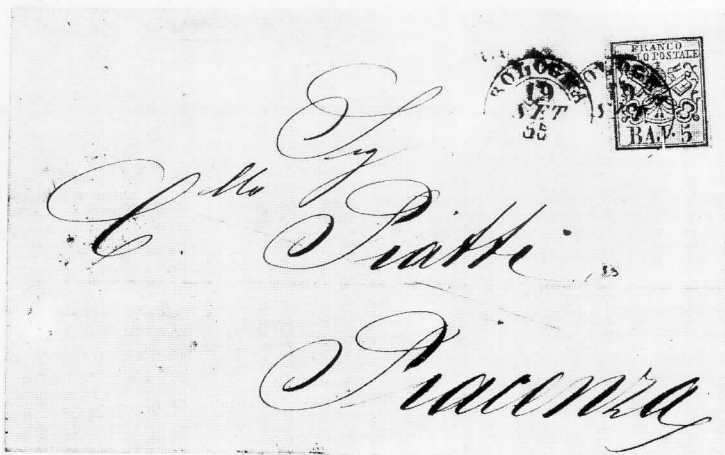 BOLOGNA
19
SET
55
FRANCO
BOLLO POSTALE
BAJ. 5
Sig
C.llo Piatti
Piacenza